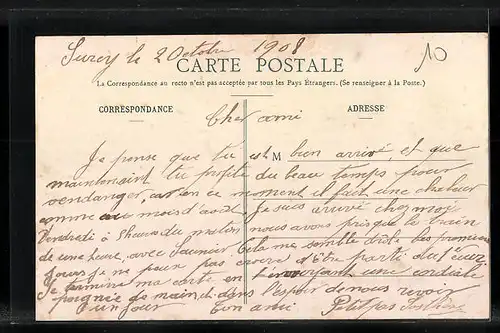 Surcy le 2 Octobre 1908
10
CARTE POSTALE
La Correspondance au recto n'est pas acceptée par tous les Pays Étrangers. (Se renseigner à la Poste.)
CORRESPONDANCE
ADRESSE
Cher ami
M
Je pense que tu es bien arrivé, et que
maintenant tu profite du beau temps pour
vendanger, car en ce moment il fait une chaleur
comme au mois d'août. Je suis arrivé chez moi
Vendredi à 8 heures du matin nous avons pris que le train
de une heure, avec Saumier. Cela me semble drôle les premiers
jours je ne peux pas croire d'être parti du
Je termine ma carte en t'envoyant une cordiale
poignée de main, et dans l'espoir de nous revoir
un jour Ton ami Petitjas